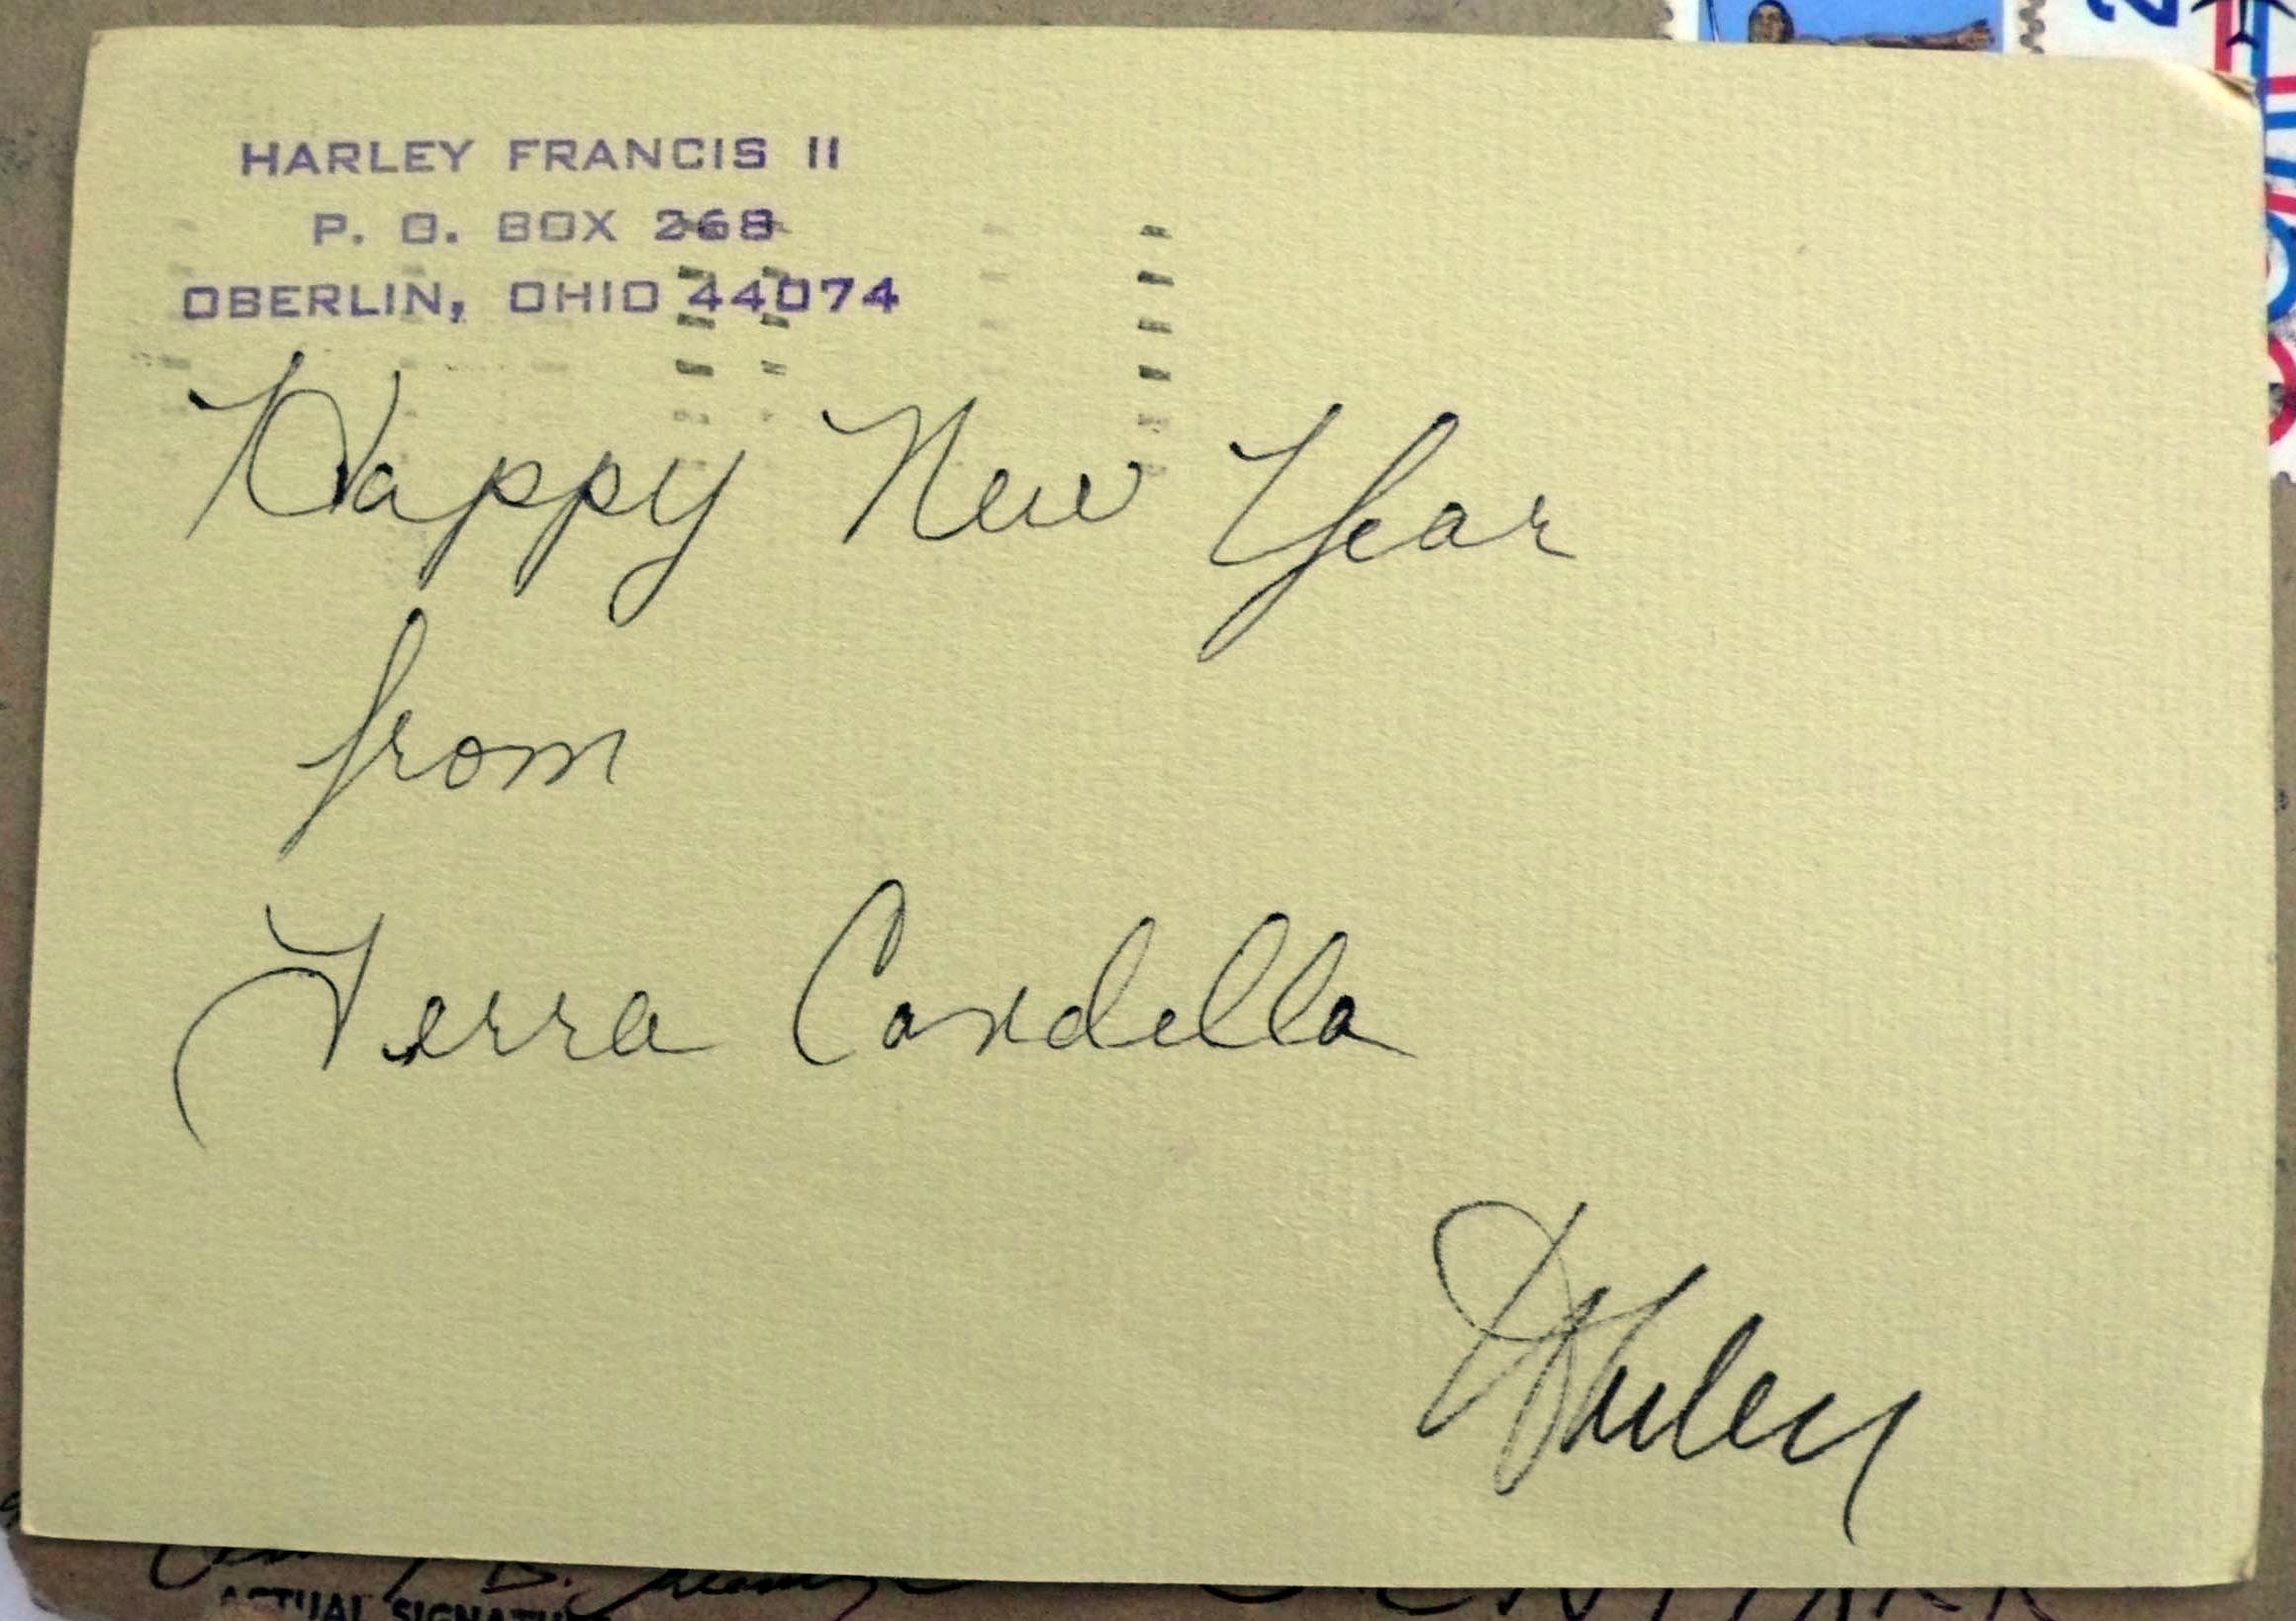 HARLEY FRANCIS II
P. O. BOX 268
OBERLIN, OHIO 44074
Happy New Year
from
Terra Candella
Harley
ACTUAL SIGNATURE